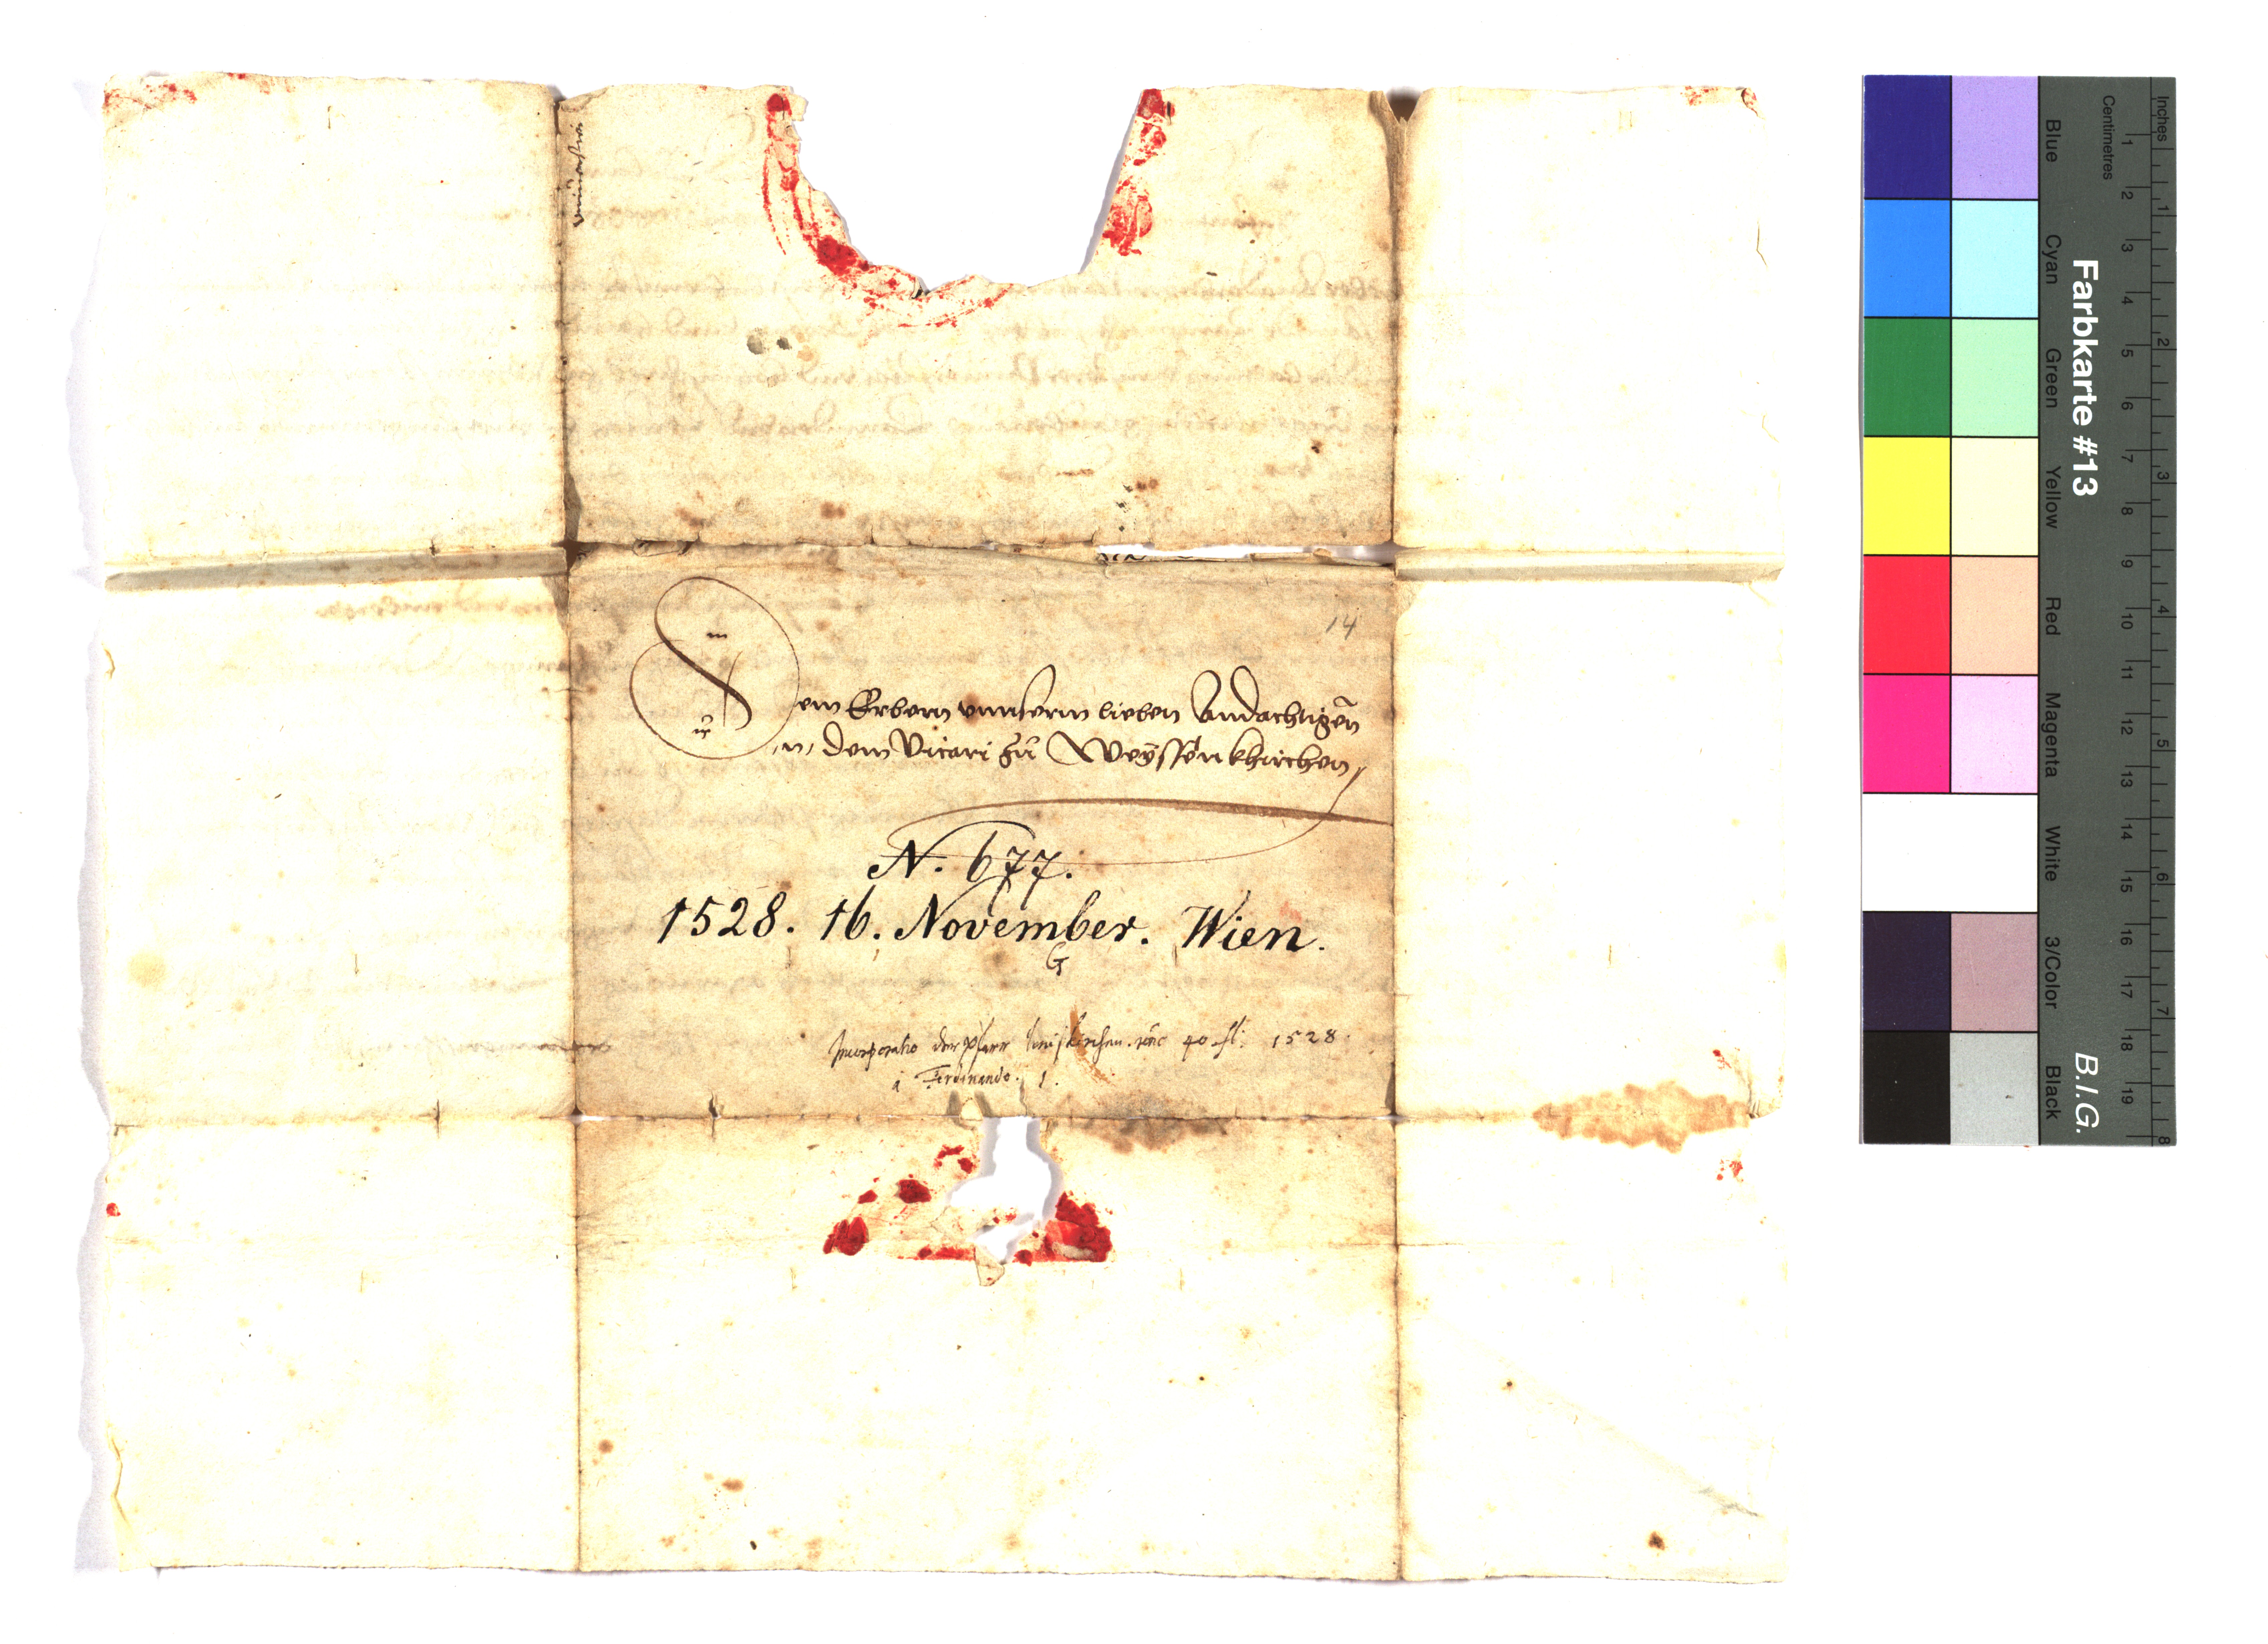 14
Dem Erbern unnserm lieben Andachtigen
N dem Vicari zu Weyssenkhirchen
N. 677.
1528. 16. November. Wien.
G
Incorporatio der Pfarr Weiskirchen. 40 fl. 1528.
a Ferdinando. 1.
Farbkarte #13
B.I.G.
Inches
Centimetres
Blue
Cyan
Green
Yellow
Red
Magenta
White
3/Color
Black
1 2 3 4 5 6 7 8 9 10 11 12 13 14 15 16 17 18 19
1 2 3 4 5 6 7 8